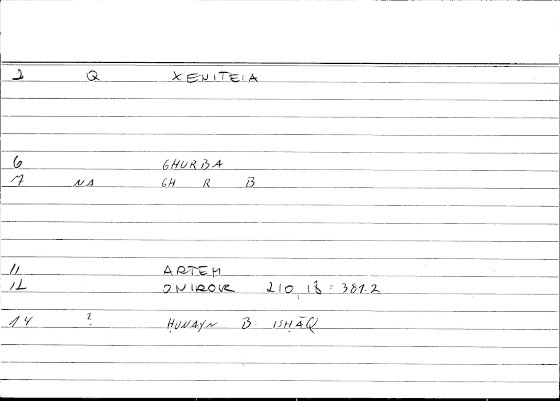 2 Q XENITEIA
6 GHURBA
7 NA GH R B
11 ARTEM
12 ONIROK 210, 18 = 381.2
14 ? ḤUNAYN B. ISḤĀQ